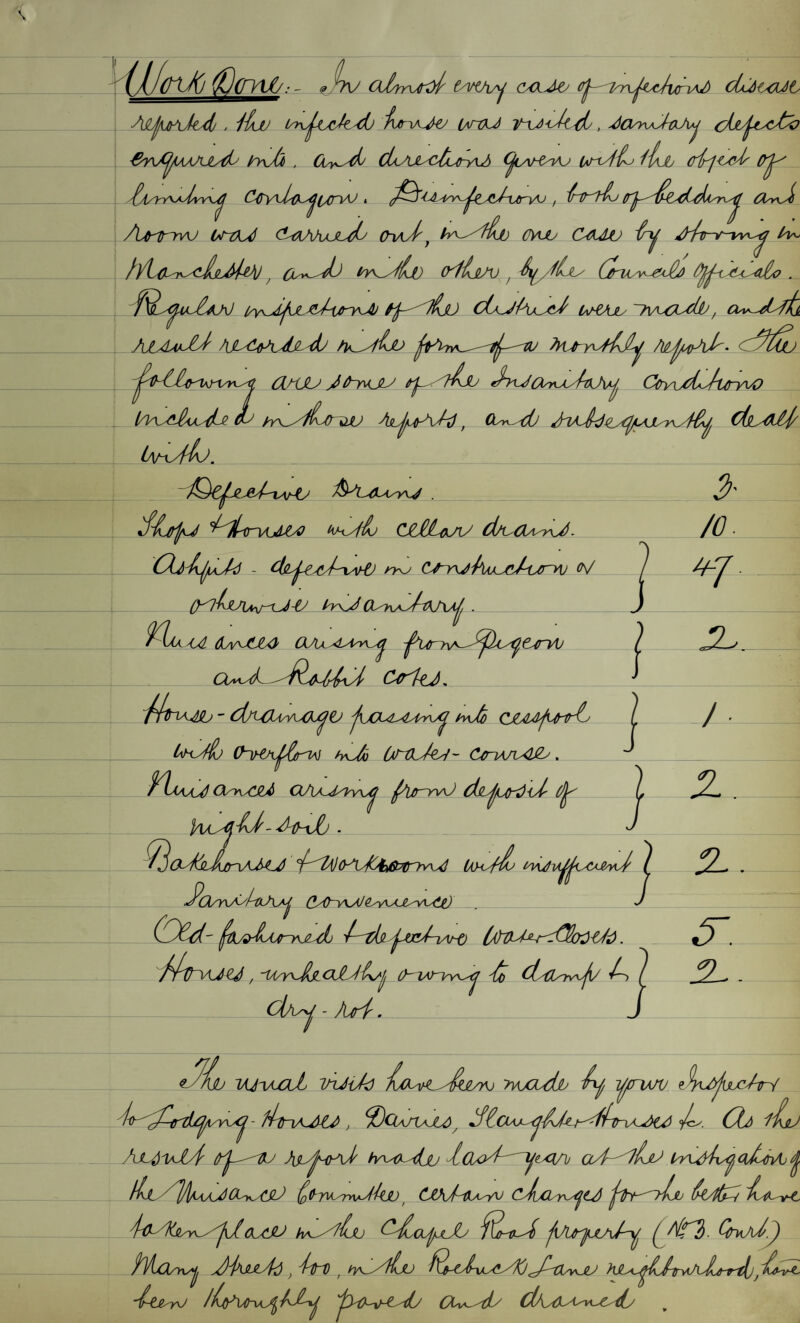 Work Done:- In almost every case of infectious disease
reported, the infected house was visited, sanitary defects
enquired into, and directions given with the object of
limiting contagion. Disinfection, both of bedding and
room was carried out, in the one case by stoving in
Manchester, and in the other, by the Council's Officials.
Regular inspections of the district were made, and the
result recorded in the form of a monthly report. The
following are some of the Insanitary Conditions
included in those reports, and subsequently dealt
with.
Defective Drains. 3.
Shops & Houses with cellar drains. 10.
Ashpits - defective in construction or 47.
otherwise insanitary.
Nuisances arising from Pigeon 2.
and Rabbit Cotes.
House-drainage passing into cesspool 1.
with overflow into water-course.
Nuisances arising from deposit of 2.
night-soil.
Bakehouses & Workrooms with insufficient 2.
Sanitary convenience.
Old-fashioned & defective Water-Closets. 5.
Houses, unhealthy owing to damp & 2.
dry-rot.
The usual visits have been made by your Inspector
to Lodging-Houses, Dairies, Slaughter-Houses &c. As the
result of a report made last year at the instigation of
the Nuisance Committee, certain changes for the better have
taken place in the Chapel Road property (No 3. Court)
Many Streets, too, in the Refuge Lane neighbourhood, have
been thoroughly paved and drained.